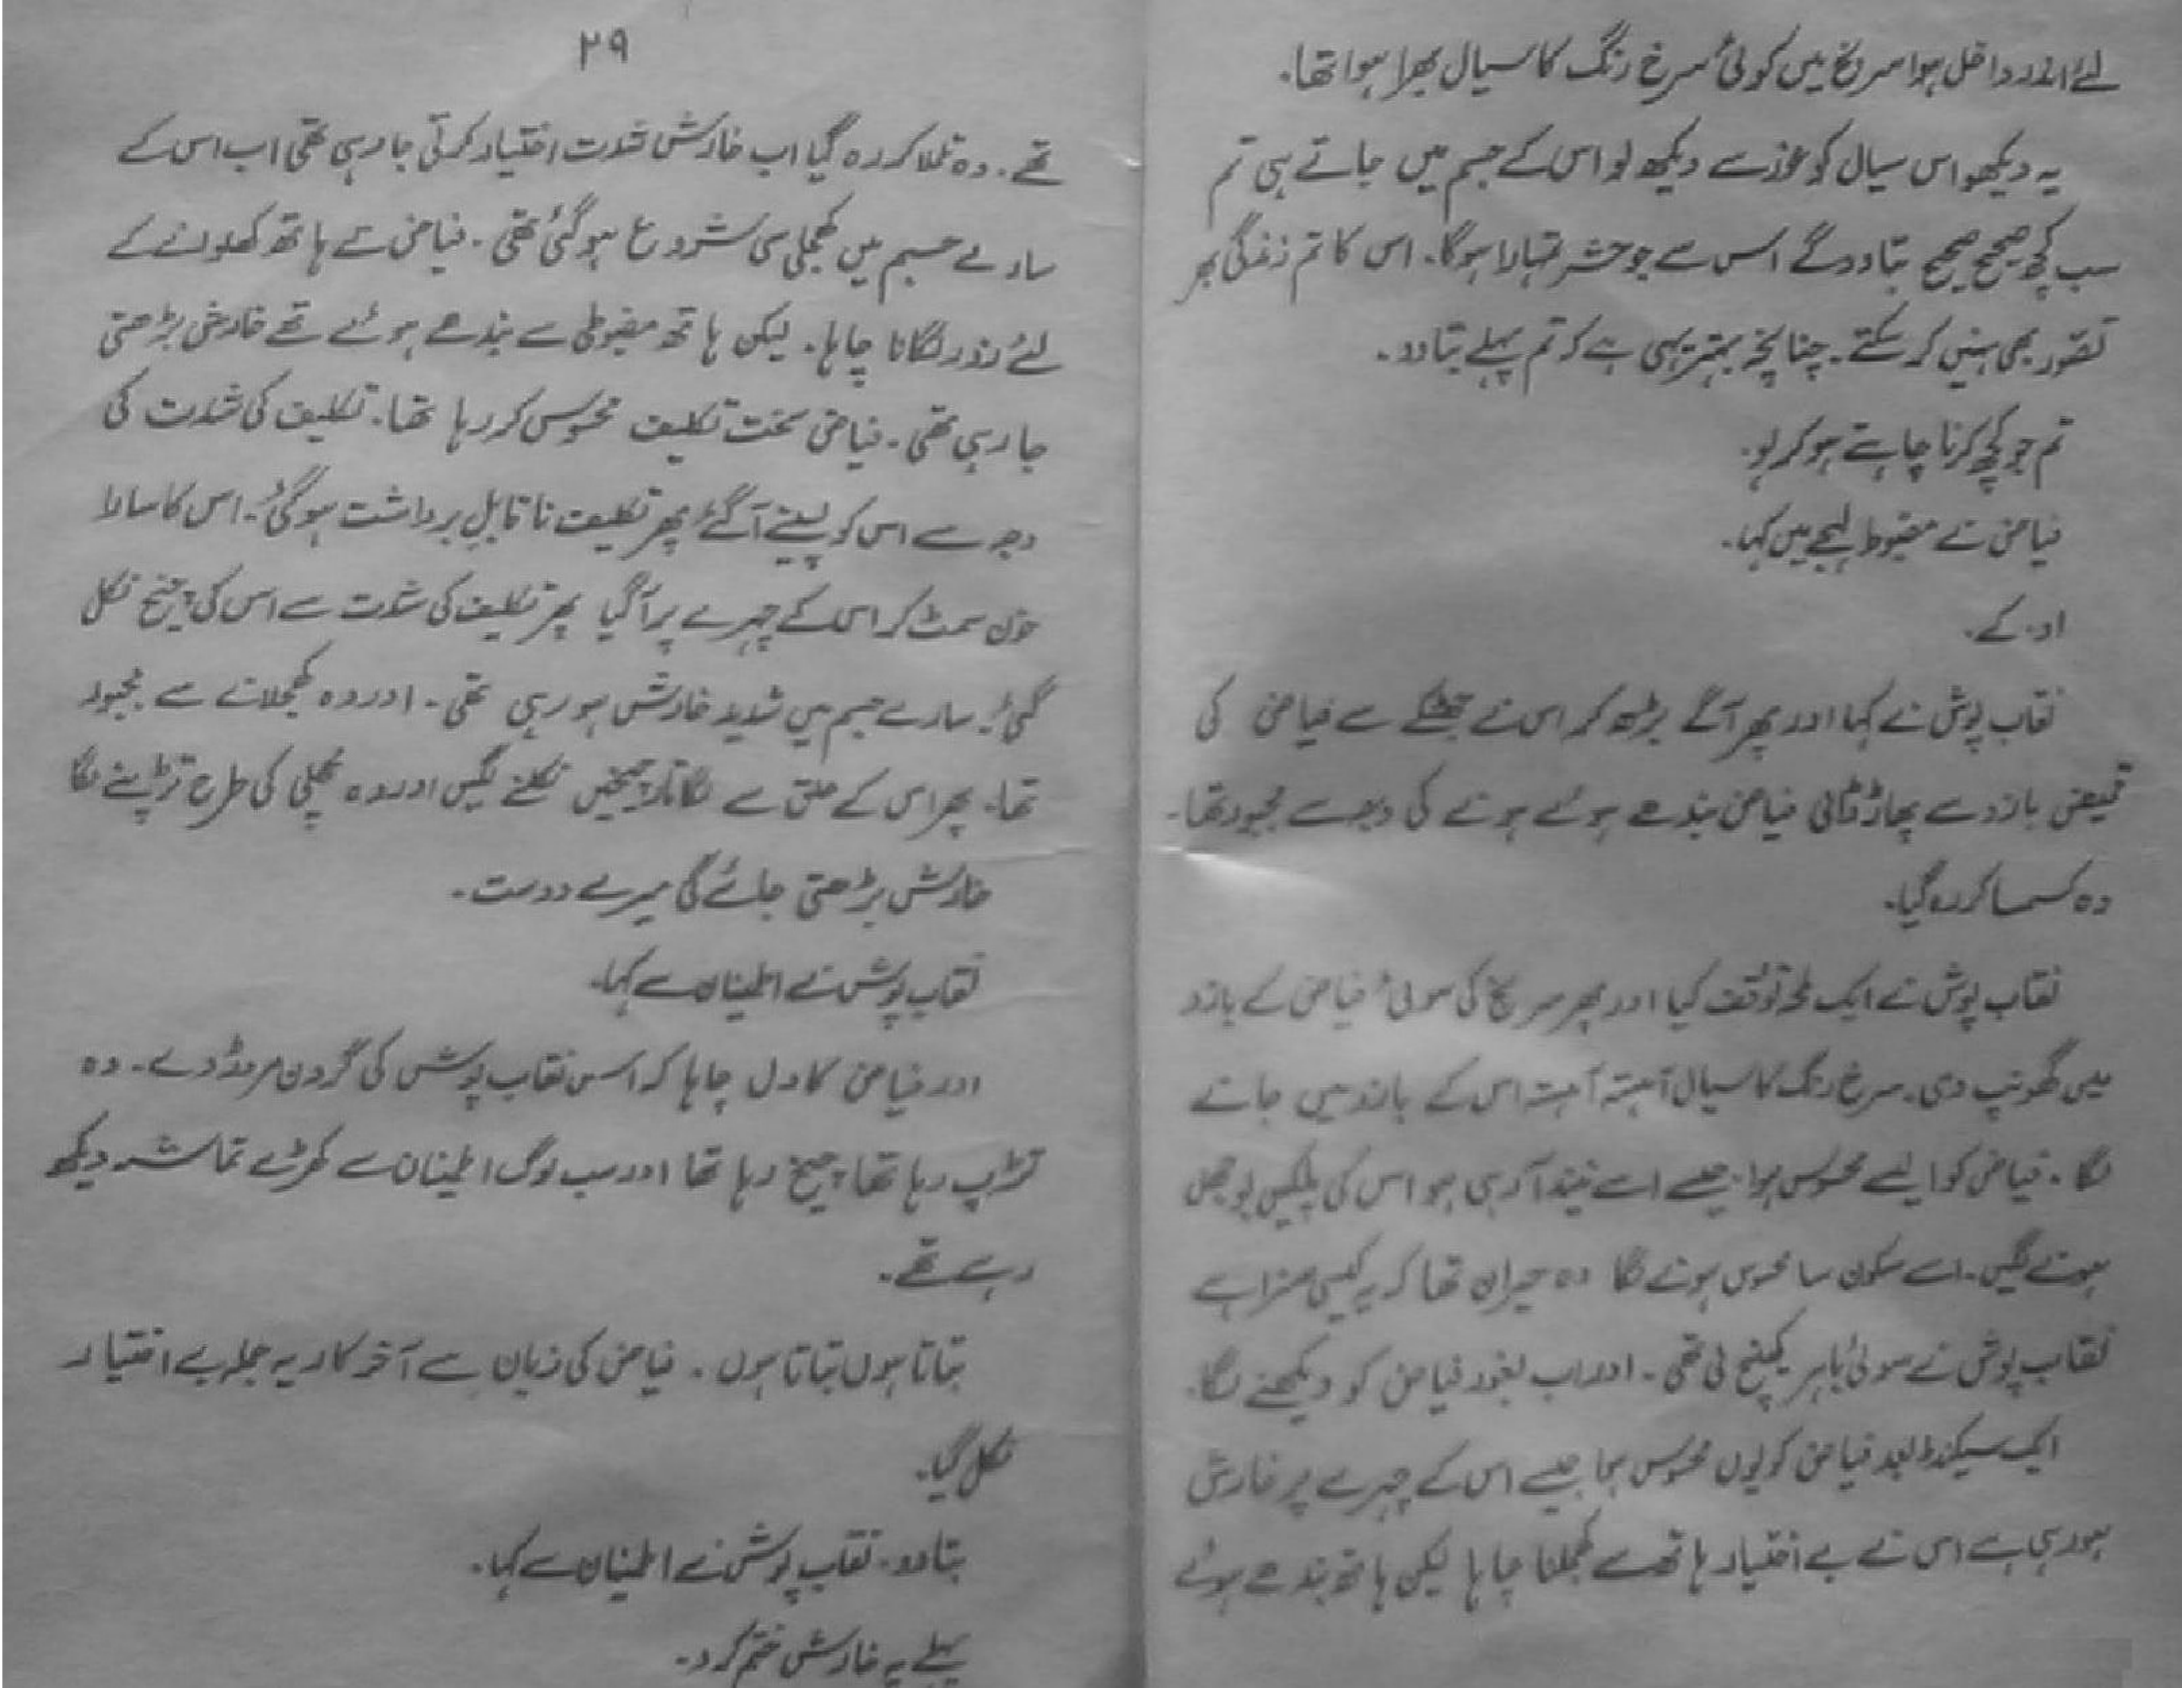 لئے اندر داخل ہوا سرنج میں کوئی سرخ رنگ کا سیال بھرا ہوا تھا۔
یہ دیکھو اس سیال کو غور سے دیکھ لو اس کے جسم میں جاتے ہی تم
سب کچھ صحیح صحیح بتا دو گے اس سے جو حشر تمہارا ہوگا۔ اس کا تم زندگی بھر
تصور بھی نہیں کر سکتے۔ چنانچہ بہتر یہی ہے کہ تم پہلے بتا دو۔
تم جو کچھ کرنا چاہتے ہو کر لو۔
فیاض نے مضبوط لہجے میں کہا۔
او۔ کے۔
نقاب پوش نے کہا اور پھر آگے بڑھ کر اس نے جھٹکے سے فیاض کی
قمیض بازو سے پھاڑ ڈالی فیاض بندھے ہوئے ہونے کی وجہ سے مجبور تھا۔
وہ کسمسا کر رہ گیا۔
نقاب پوش نے ایک لمحہ توقف کیا اور پھر سرنج کی سوئی فیاض کے بازو
میں گھونپ دی۔ سرخ رنگ کا سیال آہستہ آہستہ اس کے بازو میں جانے
لگا۔ فیاض کو ایسے محسوس ہوا جیسے اسے نیند آ رہی ہو اس کی پلکیں بوجھل
ہونے لگیں۔ اسے سکون سا محسوس ہونے لگا وہ حیران تھا کہ یہ کیسی سزا ہے
نقاب پوش نے سوئی باہر کھینچ لی تھی۔ اور اب بغور فیاض کو دیکھنے لگا۔
ایک سیکنڈ بعد فیاض کو یوں محسوس ہوا جیسے اس کے چہرے پر خارش
ہو رہی ہے اس نے بے اختیار ہاتھ سے کھجلنا چاہا لیکن ہاتھ بندھے ہوئے
۲۹
تھے۔ وہ تلملا کر رہ گیا اب خارش شدت اختیار کرتی جا رہی تھی اب اس کے
سارے جسم میں کھجلی سی شروع ہو گئی تھی۔ فیاض نے ہاتھ کھولنے کے
لئے زور لگانا چاہا۔ لیکن ہاتھ مضبوطی سے بندھے ہوئے تھے خارش بڑھتی
جا رہی تھی۔ فیاض سخت تکلیف محسوس کر رہا تھا۔ تکلیف کی شدت کی
وجہ سے اس کو پسینے آ گئے پھر تکلیف ناقابلِ برداشت ہو گئی۔ اس کا سارا
خون سمٹ کر اس کے چہرے پر آ گیا پھر تکلیف کی شدت سے اس کی چیخ نکل
گئی۔ سارے جسم میں شدید خارش ہو رہی تھی۔ اور وہ کھجلانے سے مجبور
تھا۔ پھر اس کے حلق سے لگاتار چیخیں نکلنے لگیں اور وہ مچھلی کی طرح تڑپنے لگا
خارش بڑھتی جائے گی میرے دوست۔
نقاب پوش نے اطمینان سے کہا۔
اور فیاض کا دل چاہا کہ اس نقاب پوش کی گردن مروڑ دے۔ وہ
تڑپ رہا تھا چیخ رہا تھا اور سب لوگ اطمینان سے کھڑے تماشہ دیکھ
رہے تھے۔
بتاتا ہوں بتاتا ہوں۔ فیاض کی زبان سے آخر کار یہ جملہ بے اختیار
نکل گیا۔
بتا دو۔ نقاب پوش نے اطمینان سے کہا۔
پہلے یہ خارش ختم کرو۔